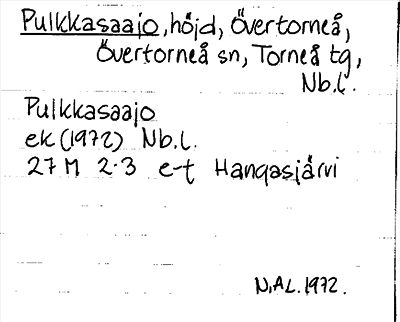 Pulkkasaajo, höjd, Övertorneå,
Övertorneå sn, Torneå tg,
Nb.l.
Pulkkasaajo
ek (1972) Nb.l.
27 M 2·3 e-t Hangasjärvi
N.ÅL. 1972.